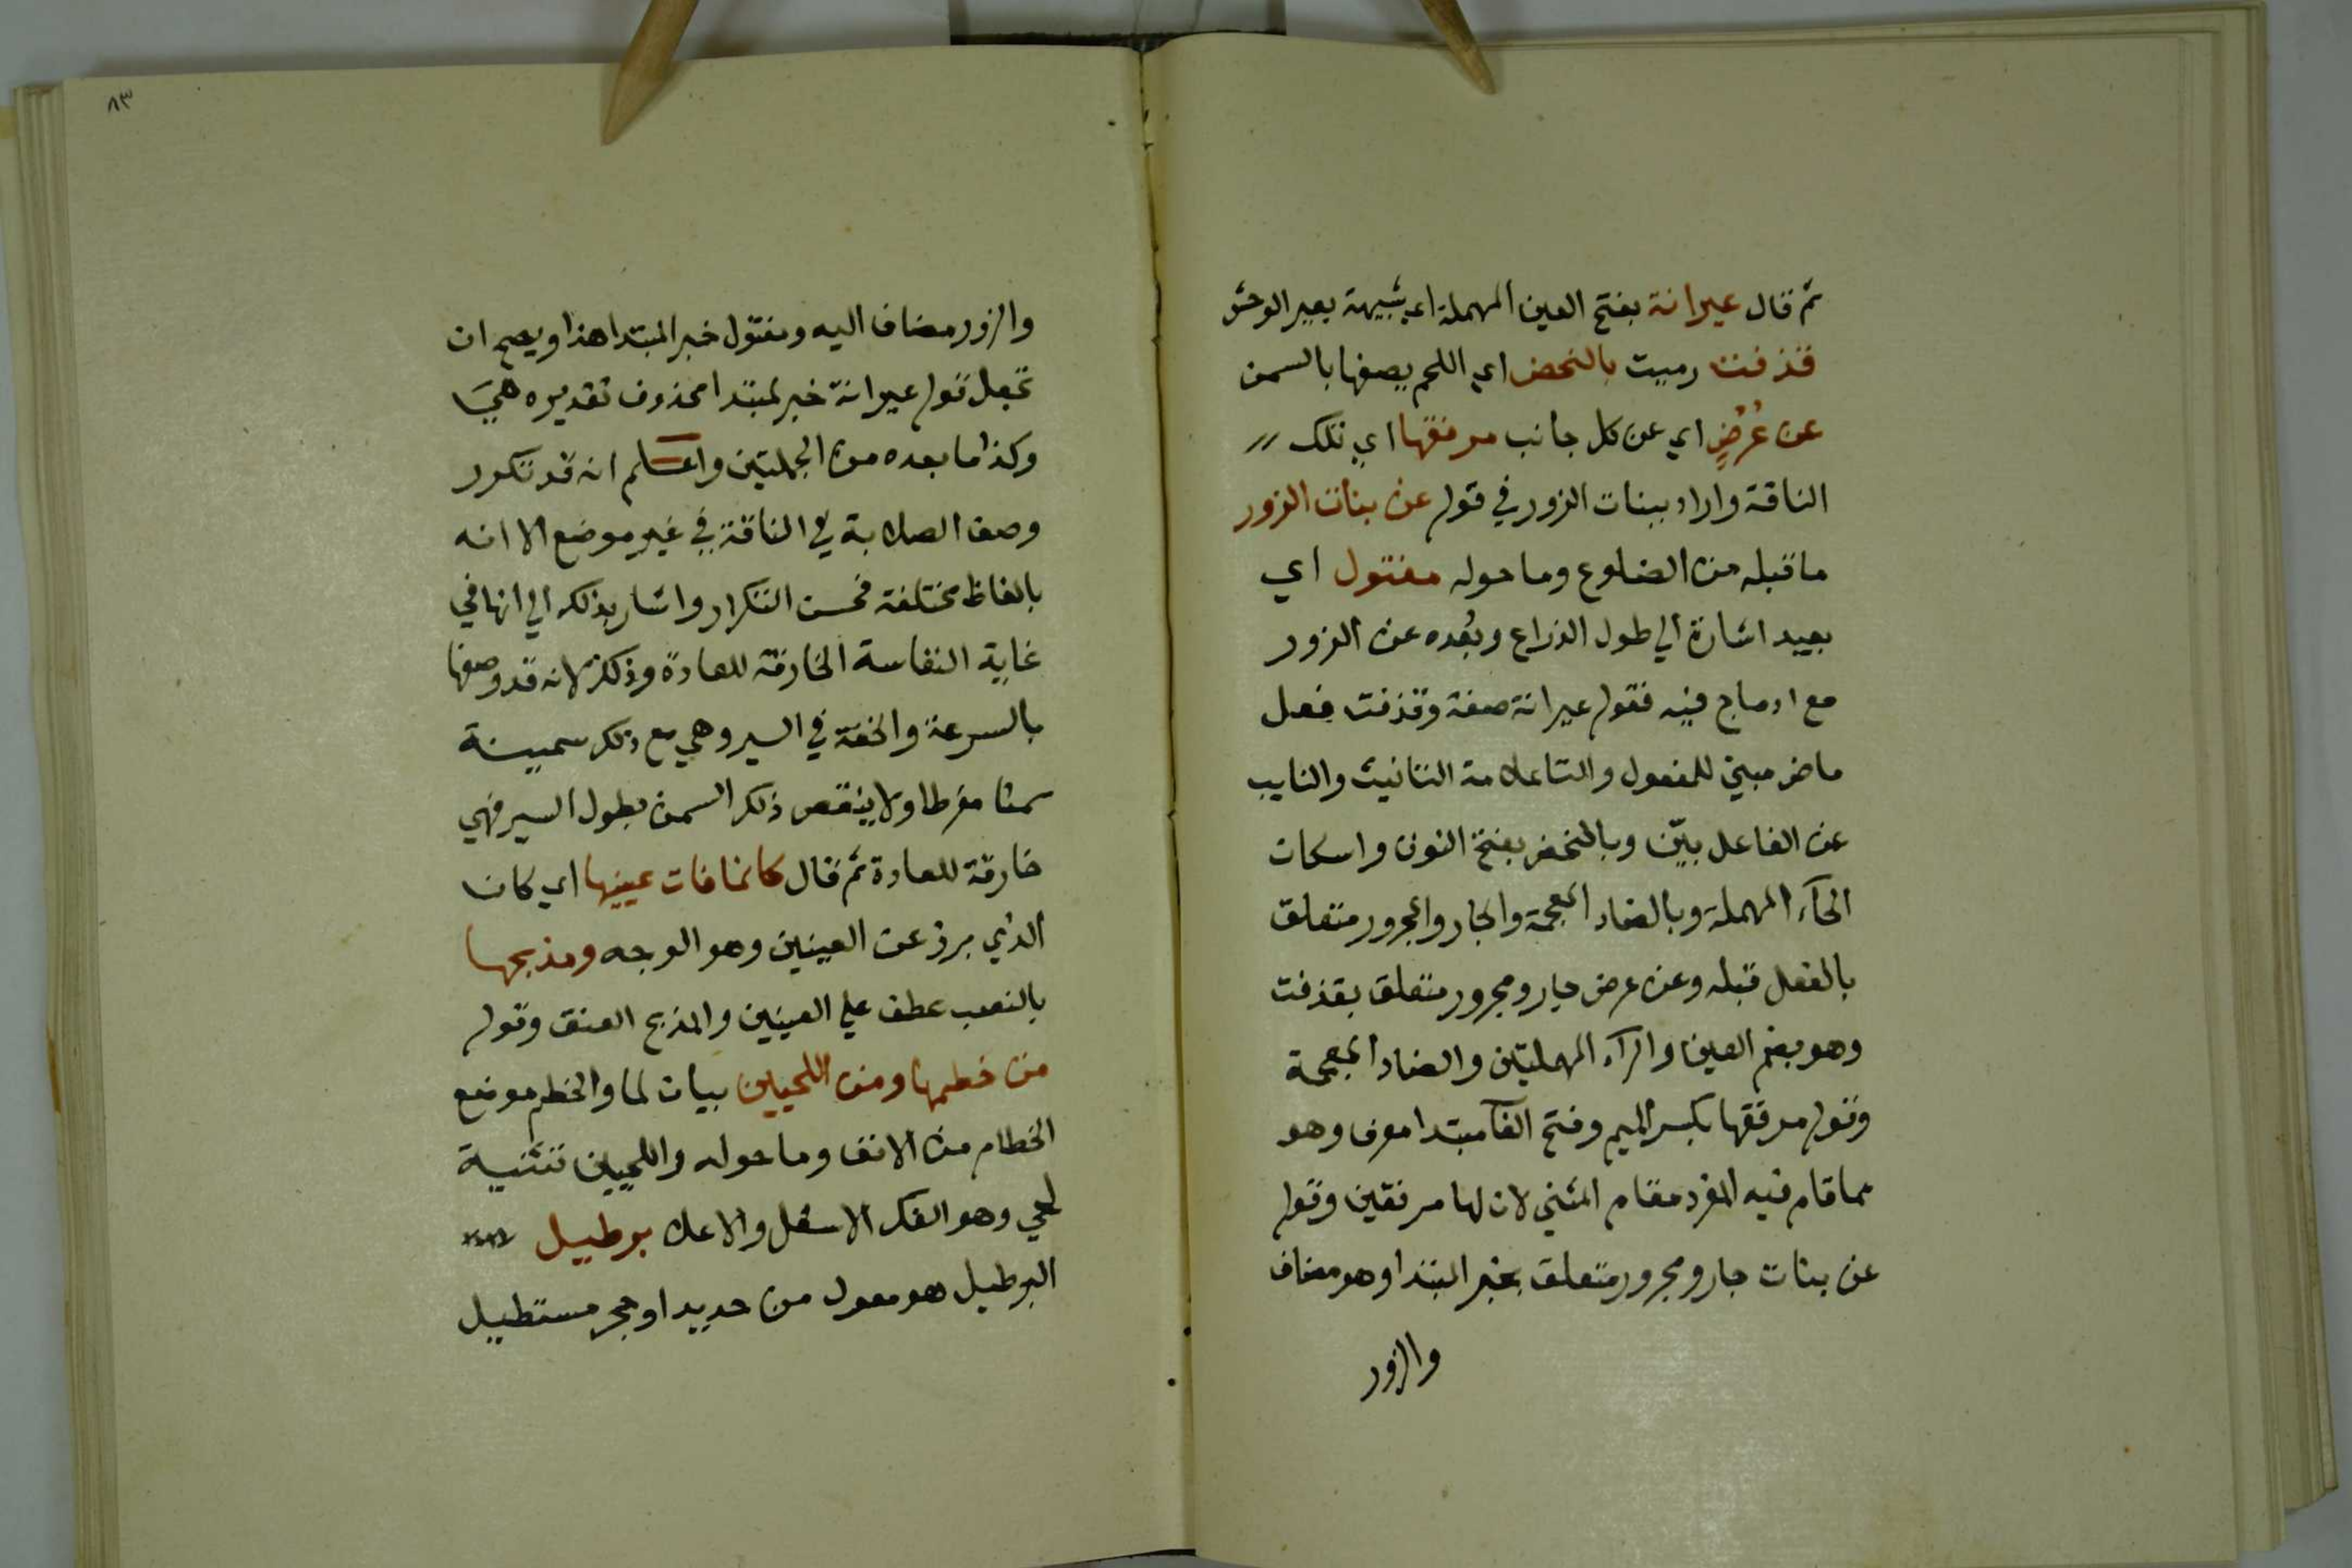 ثم قال عيرانة بفتح العين المهملة اي شبيهة بعير الوحش
قذفت رميت بالنحض اي اللحم يصفها بالسمن
عن عُرُضٍ اي عن كل جانب مرفقها اي تلك
الناقة واراد ببنات الزور في قوله عن بنات الزور
ما قبله من الضلوع وما حوله مفتول اي
بعيد اشارة الي طول الذراع وبُعده عن الزور
مع ادماج فيه فقوله عيرانة صفة وقذفت فعل
ماض مبني للمفعول والتا علامة التانيث والنايب
عن الفاعل بيّن وبالنحض بفتح النون واسكان
الحآء المهملة وبالضاد المعجمة والجار والمجرور متعلق
بالفعل قبله وعن عرض جار ومجرور متعلق بقذفت
وهو بضم العين والرآء المهملتين والضاد المعجمة
وقوله مرفقها بكسر الميم وفتح الفآ مبتدا معرف وهو
مما قام فيه المفرد مقام المثني لان لها مرفقين وقوله
عن بنات جار ومجرور متعلق بخبر المبتدا وهو مضاف
والزور
٨٣
والزور مضاف اليه ومفتول خبر المبتدا هذا ويصح ان
تجعل قوله عيرانة خبر لمبتدا محذوف تقديره هي
وكذا ما بعده من الجملتين واعلم انه قد تكرر
وصف الصلابة في الناقة في غير موضع الا انه
بالفاظ مختلفة فحسن التكرار واشار بذلك الي انها في
غاية النفاسة الخارقة للعادة وذلك لانه قد وصفها
بالسرعة والخفة في السير وهي مع ذلك سمينة
سمنا مفرطا ولا ينقص ذلك السمن بطول السير فهي
خارقة للعادة ثم قال كانما فات عينيها اي كان
الذي برز عن العينين وهو الوجه ومذبحها
بالنصب عطف علي العينين والمذبح العنق وقوله
من خطمها ومن اللحيين بيان لما والخطم موضع
الخطام من الانف وما حوله واللحيين تثنية
لحي وهو الفك الاسفل والاعلا برطيل
البرطيل هو معول من حديد او حجر مستطيل